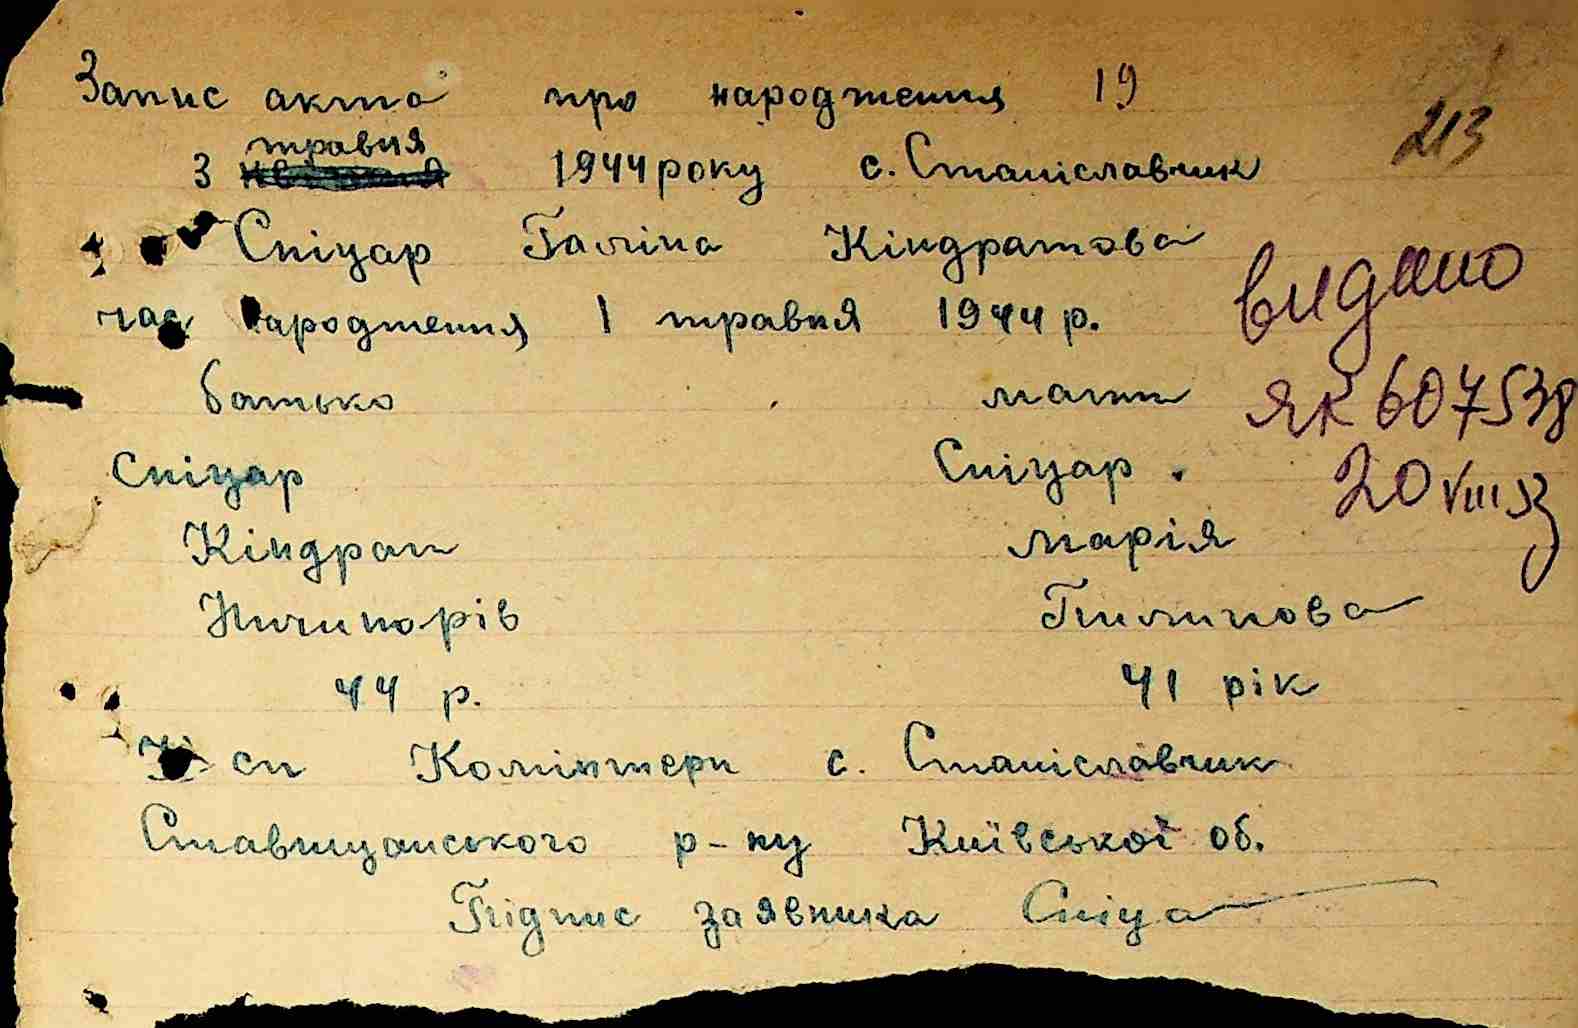 Запис акта про народження 19
213
травня
3 1944 року с. Станіславчик
Спіцар Галіна Кіндратова
видано
час народження 1 травня 1944 р.
батько мати
ЯК 607538
Спіцар Спіцар.
20 VIII 53
Кіндрат Марія
Ничипорів Пилипова
44 р. 41 рік
сп Комінтерн с. Станіславчик
Ставищанського р-ну Київської об.
Підпис заявника Спіца